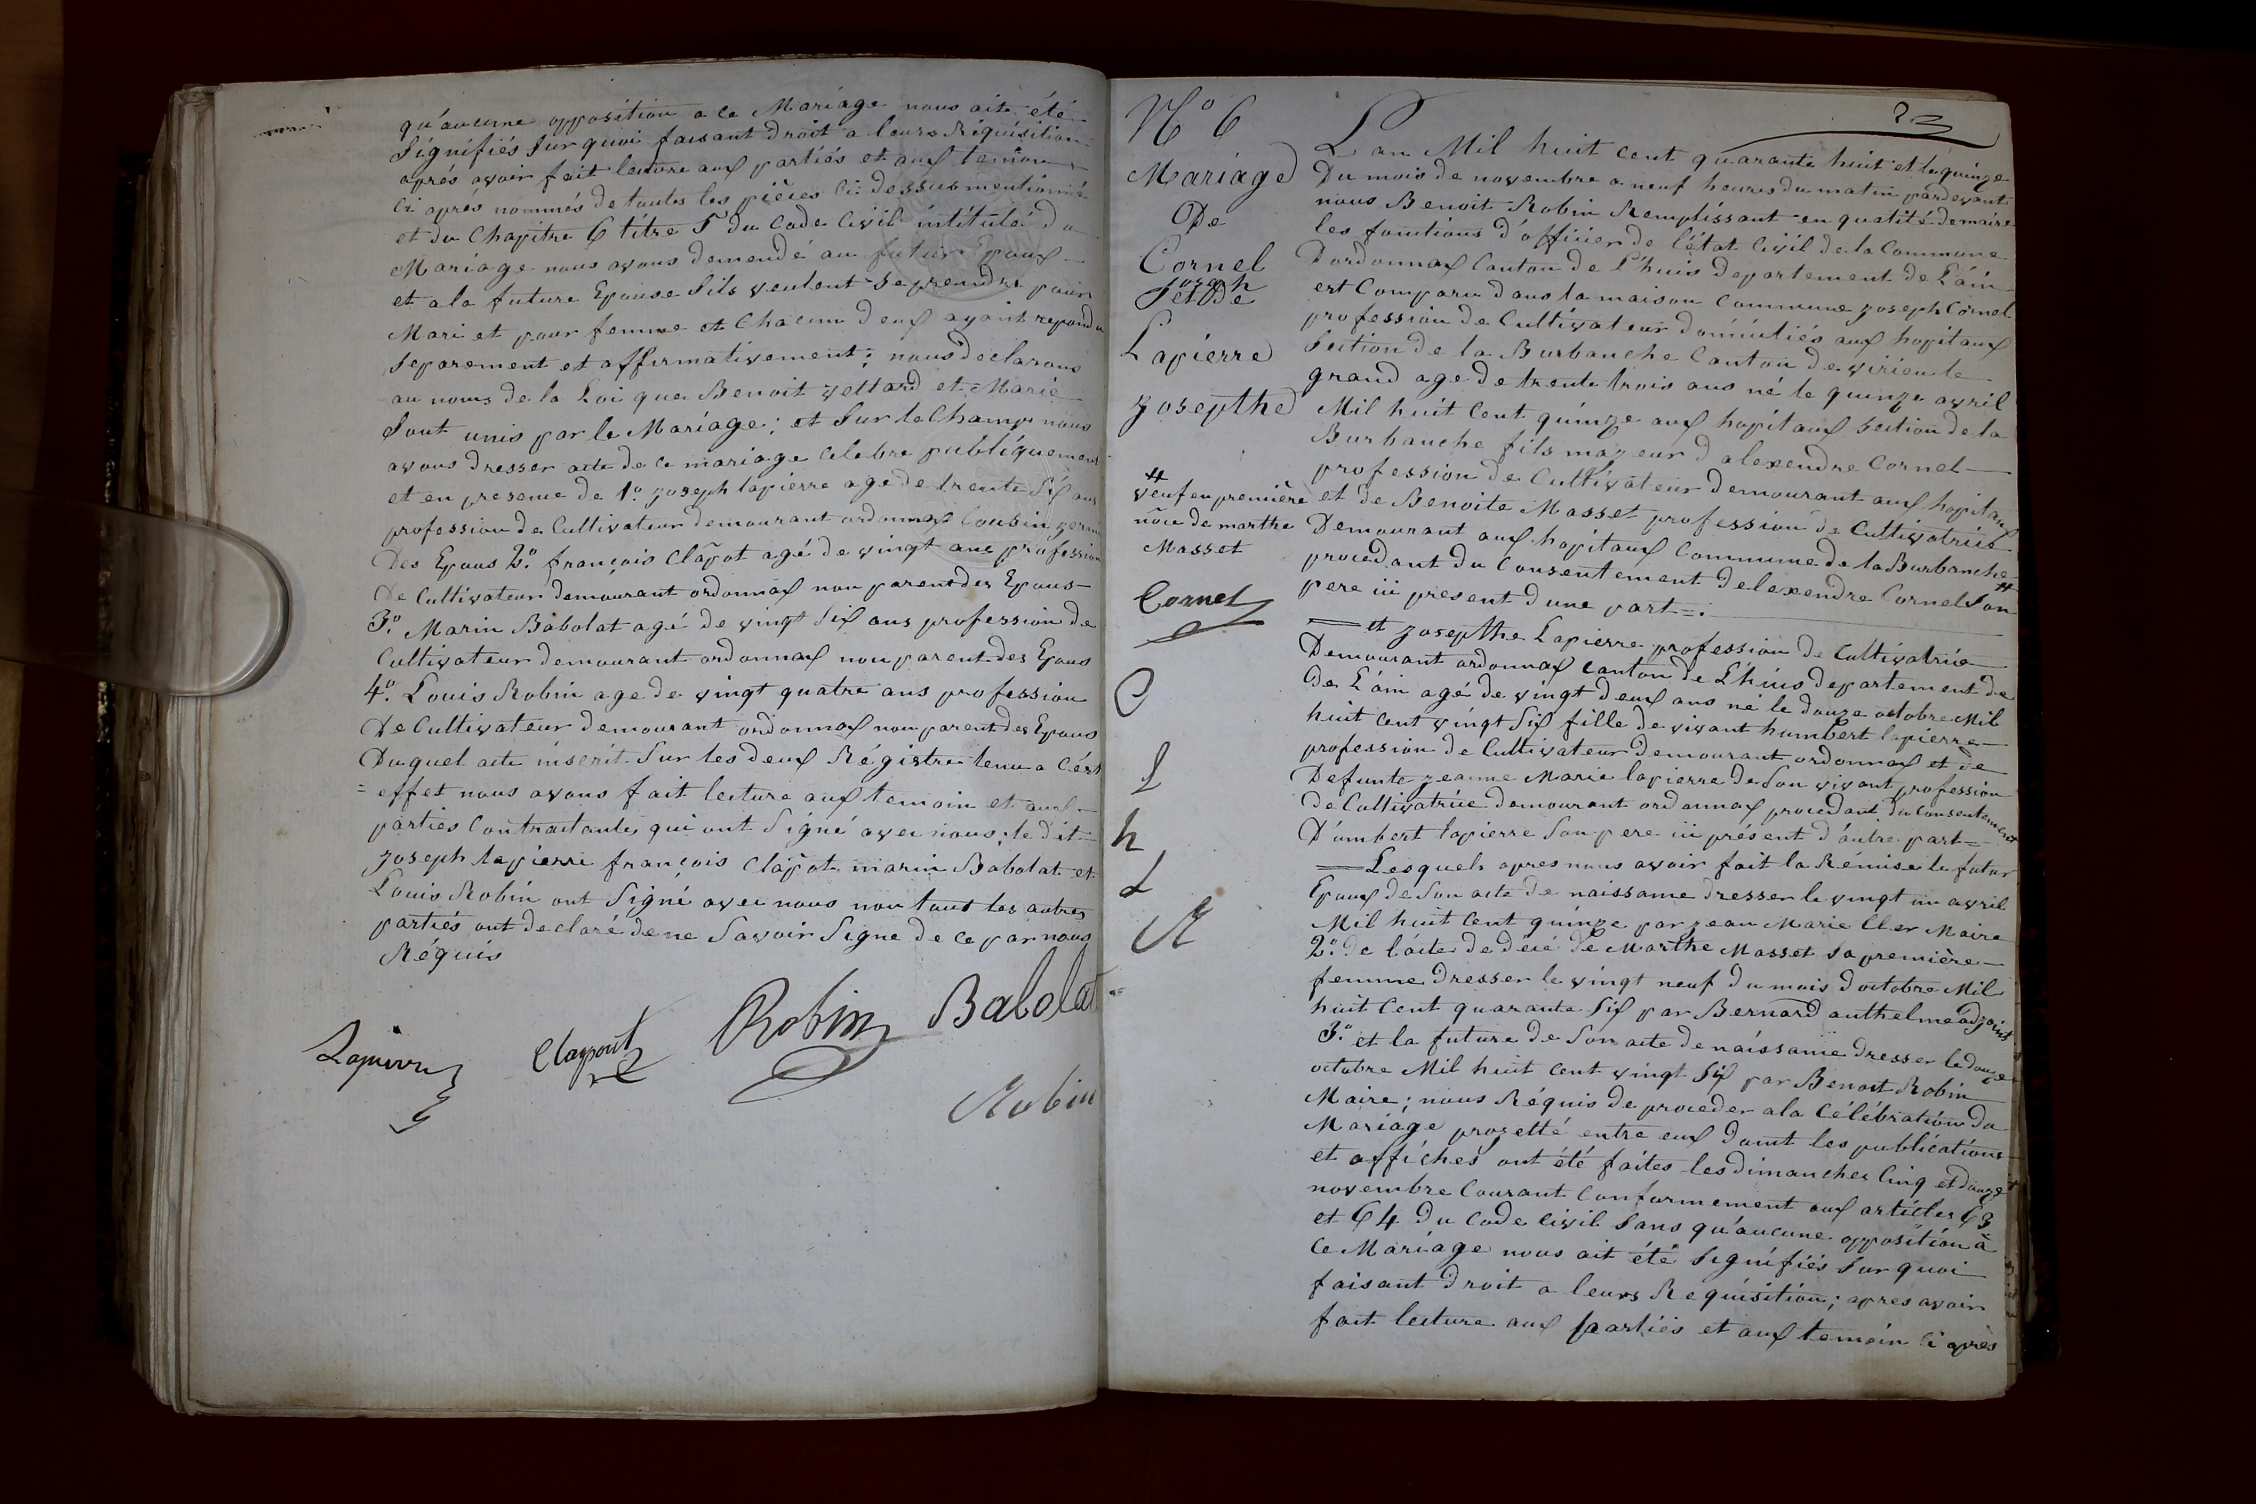 qu'aucune opposition a ce Mariage nous ait été
signifiés sur quoi faisant droit a leurs Réquisition
aprés avoir fait lecture aux partiés et aux temoin
ci apres nommés de toutes les pièces ci-dessus mentionné
et du Chapitre 6 titre 5 du Code Civil intitulé du
Mariage nous avons demendé au futur Epoux
et a la future Epouse sils veulent se prendre pour
Mari et pour femme et Chacun deux ayant repondu
separement et affirmativement; nous declarons
au noms de la Loi que Benoit vettard et Marie
sont unis par le Mariage; et sur le Champ nous
avons dresser acte de ce mariage celebre publiquement
et en presence de 1º. joseph lapierre age de trente six ans
profession de Cultivateur demourant ordonnax Cousin germ
Des Epous 2º. françois Clapot agé de vingt ans profession
De Cultivateur demourant ordonnax non parent des Epous
3º. Marin Babolat agé de vingt six ans profession de
Cultivateur demourant ordonnax non parent des Epous
4º. Louis Robin age de vingt quatre ans profession
De Cultivateur demourant ordonnax non parent des Epous
Duquel acte inscrit sur les deux Régistre tenu a cést
= effet nous avons fait lecture aux temoin et aux
parties Contractantes qui ont signé avec nous; le dit
joseph lapierre françois Clapot marin Babolat et
Louis Robin ont signé avec nous non tout les autres
partiés ont declaré de ne savoir signe de ce par nous
Réquis
Lapierre Clapout Robin Babolat
Robin
23
Nº 6
Mariage
De
Cornel
joseph
et de
Lapierre
josepthe
# veuf en première
nôce de marthe
Masset
Cornel
C
L
h
L
R
L an Mil huit cent quarante huit et le quinze
Du mois de novembre a neuf heures du matin pardevant
nous Benoit Robin Remplissant en qualité de maire
les fonctions d'officier de l'état Civil de la Commune
Dordonnax Canton de L'huis departement de L'áin
est Comparu dans la maison Commune joseph Cornel
profession de Cultivateur domiciliés aux hopitaux
section de la Burbanche Canton de virieu le
grand age de trente trois ans né le quinze avril
Mil huit cent quinze aux hopitaux section de la
Burbanche fils majeur d alexendre Cornel
profession de Cultivateur demourant aux hopitaux
et de Benoite Masset profession de Cultivatrice
Demourant aux hopitaux Commune de la Burbanche #
procedant du Consentement delexendre Cornel son
pere ici present d une part =
= et josepthe Lapierre profession de Cultivatrice
Demourant ordonnax canton de L'huis departement de
De L'áin agé de vingt deux ans né le douze octobre Mil
huit cent vingt six fille de vivant humbert lapierre
profession de Cultivateur demourant ordonnax et de
Defunte jeanne Marie lapierre de son vivant profession
de Cultivatrice demourant ordonnax procedant du Consentement
D'umbert lapierre son pere ici présent d'autre part =
= Lesquels apres nous avoir fait la Rémise le futur
Epoux de son acte de naissance dresser le vingt un avril
Mil huit Cent quinze par jean Marie Cler Maire
2º. de l'acte de décé de Marthe Masset sa première
femme dresser le vingt neuf du mois d octobre Mil
huit Cent quarante six par Bernard anthelme adjoint
3º. et la future de son acte de naissance dresser le douze
octobre Mil huit cent vingt six par Benoit Robin
Maire; nous Réquis de proceder a la Célébration du
Mariage projetté entre eux dount les publications
et affiches ont été faites les dimanches Cinq et douze
novembre Courant Conformement aux articles 63
et 64 du Code Civil sans qu'aucune opposition à
Ce Mariage nous ait été signifiés sur quoi
faisant droit a leurs Requisition; apres avoir
fait lecture aux partiés et aux temoin ci après